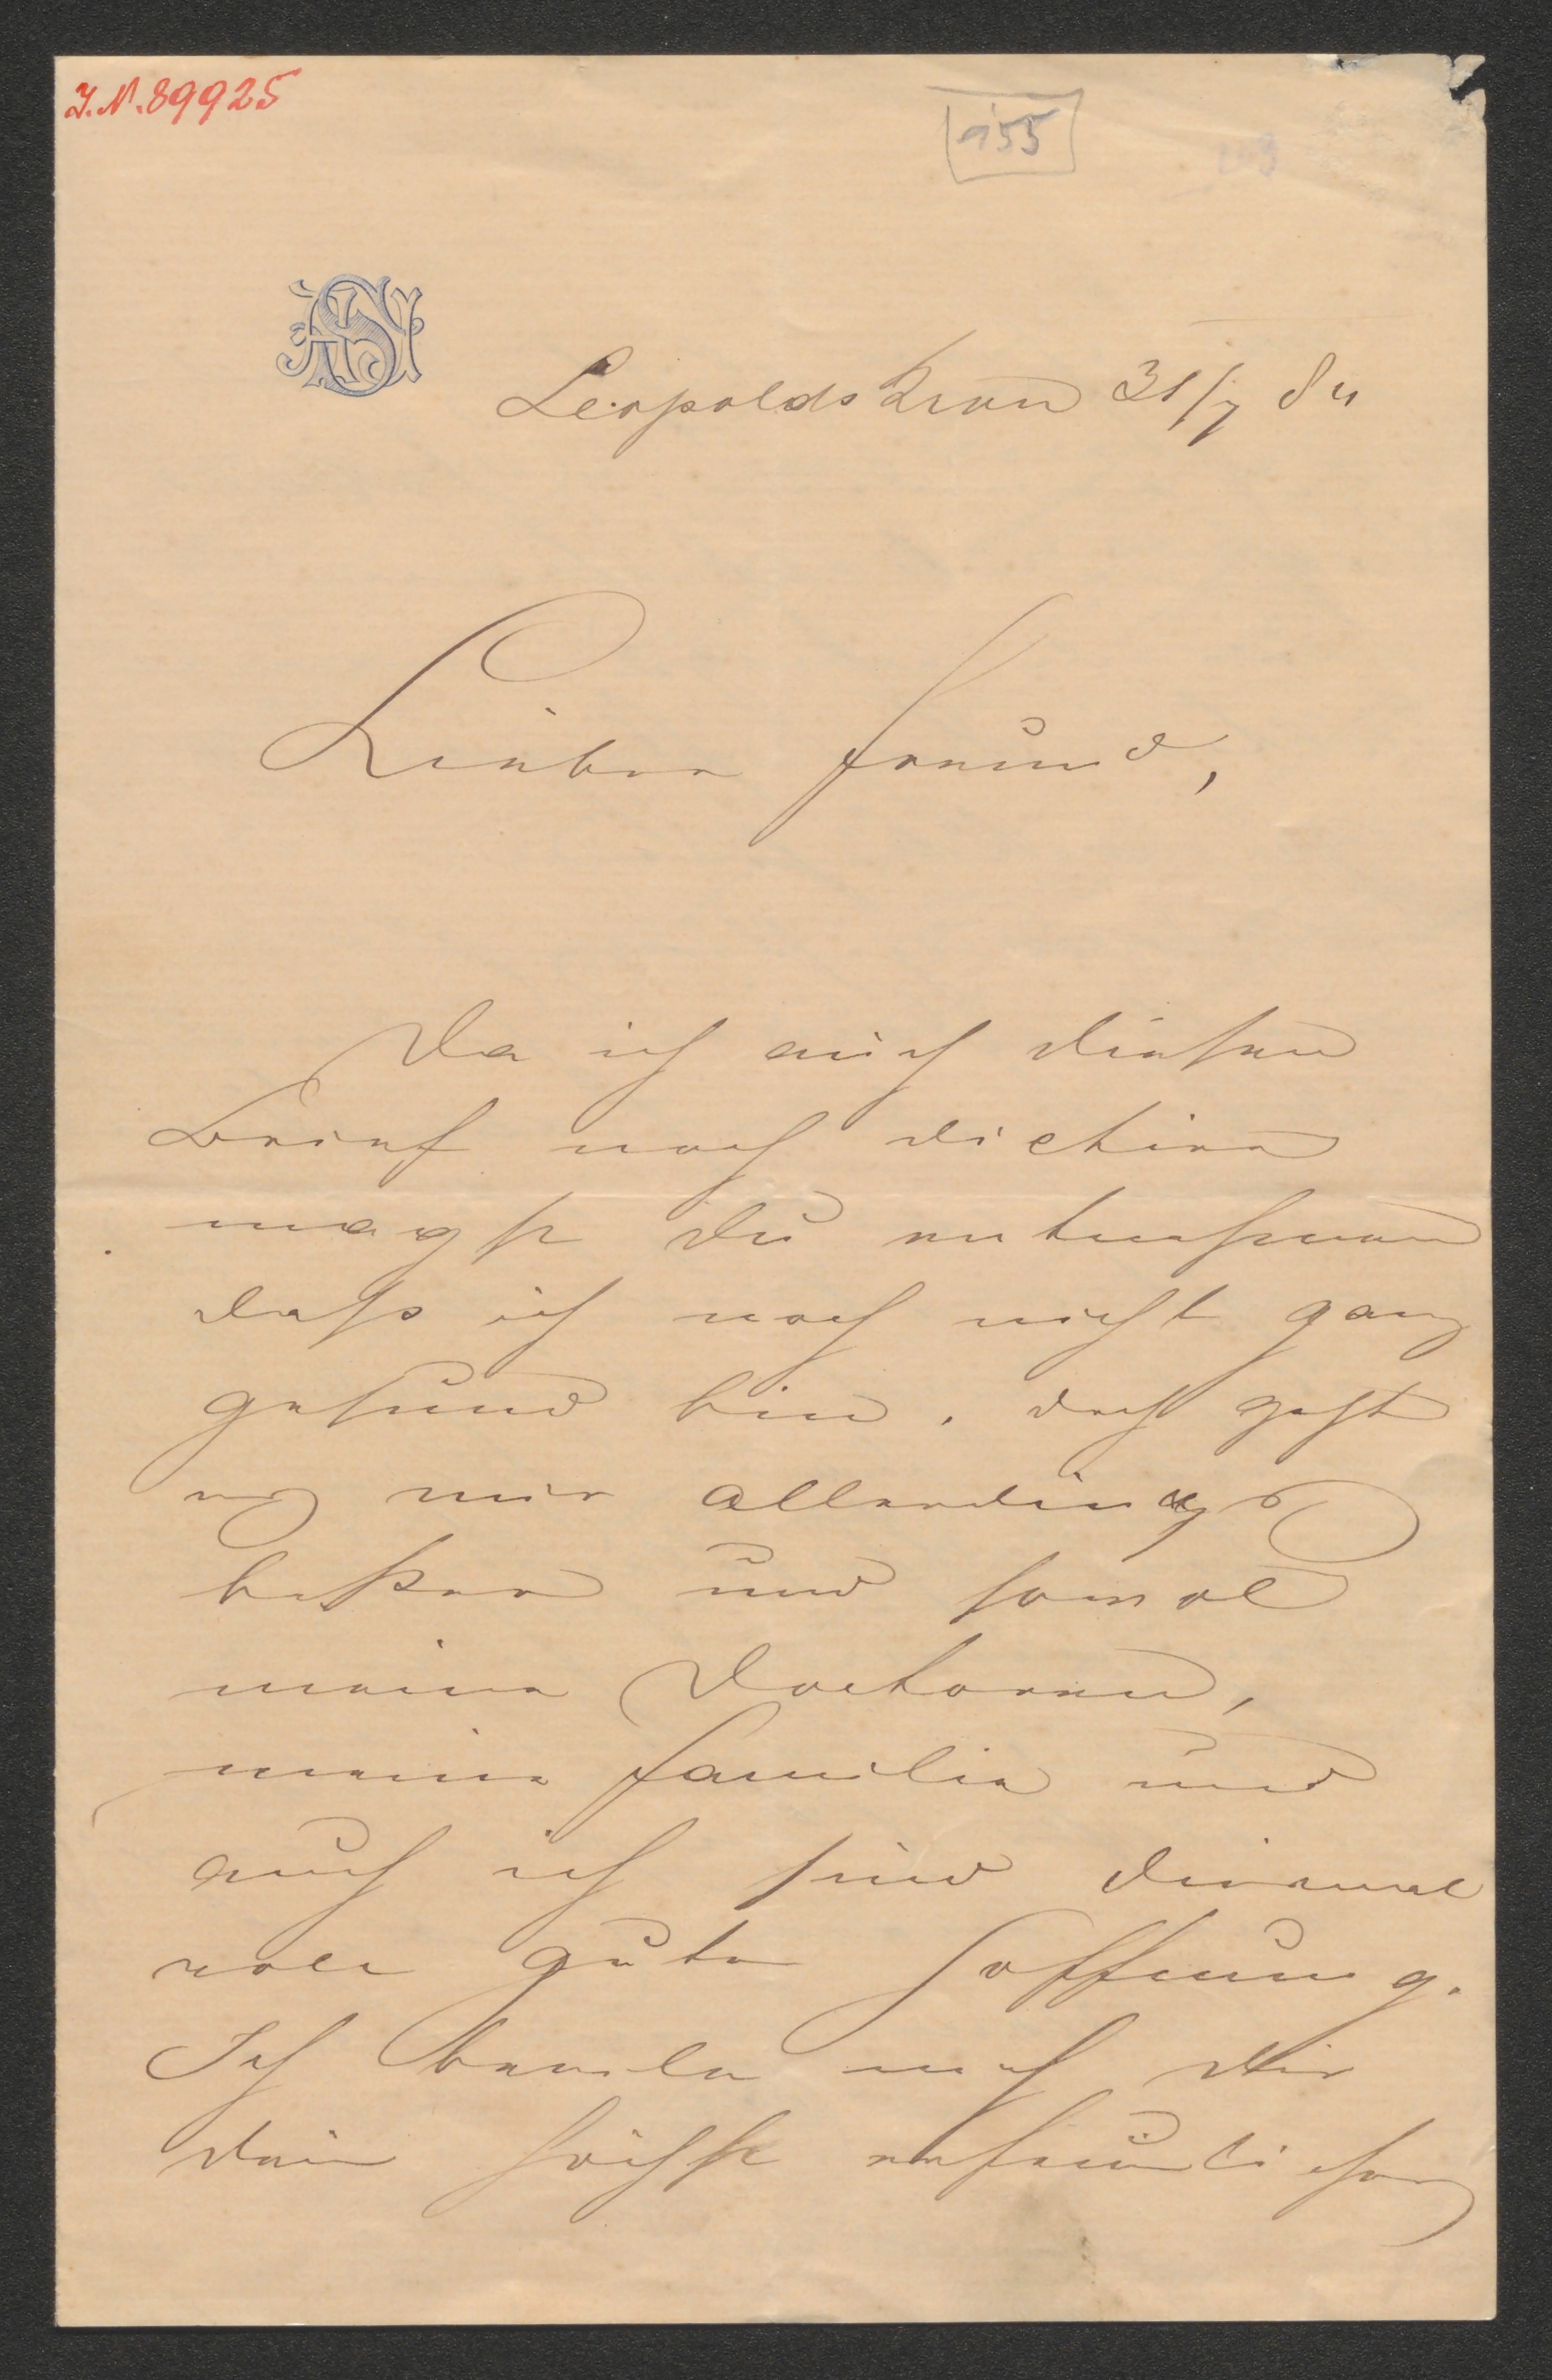 I.N. 89925
155
Leopoldskron 31/7 84
Lieber Freund,
Da ich auch diesen
Brief noch dictire
magst Du entnehmen
dass ich noch nicht ganz
gesund bin. doch geht
es mir allerdings
besser und sowol
meine Doctoren,
meine Familie und
auch ich sind diesmal
voll guter Hoffnung.
Ich theile mich Dir
Dein höchst erfreulicher